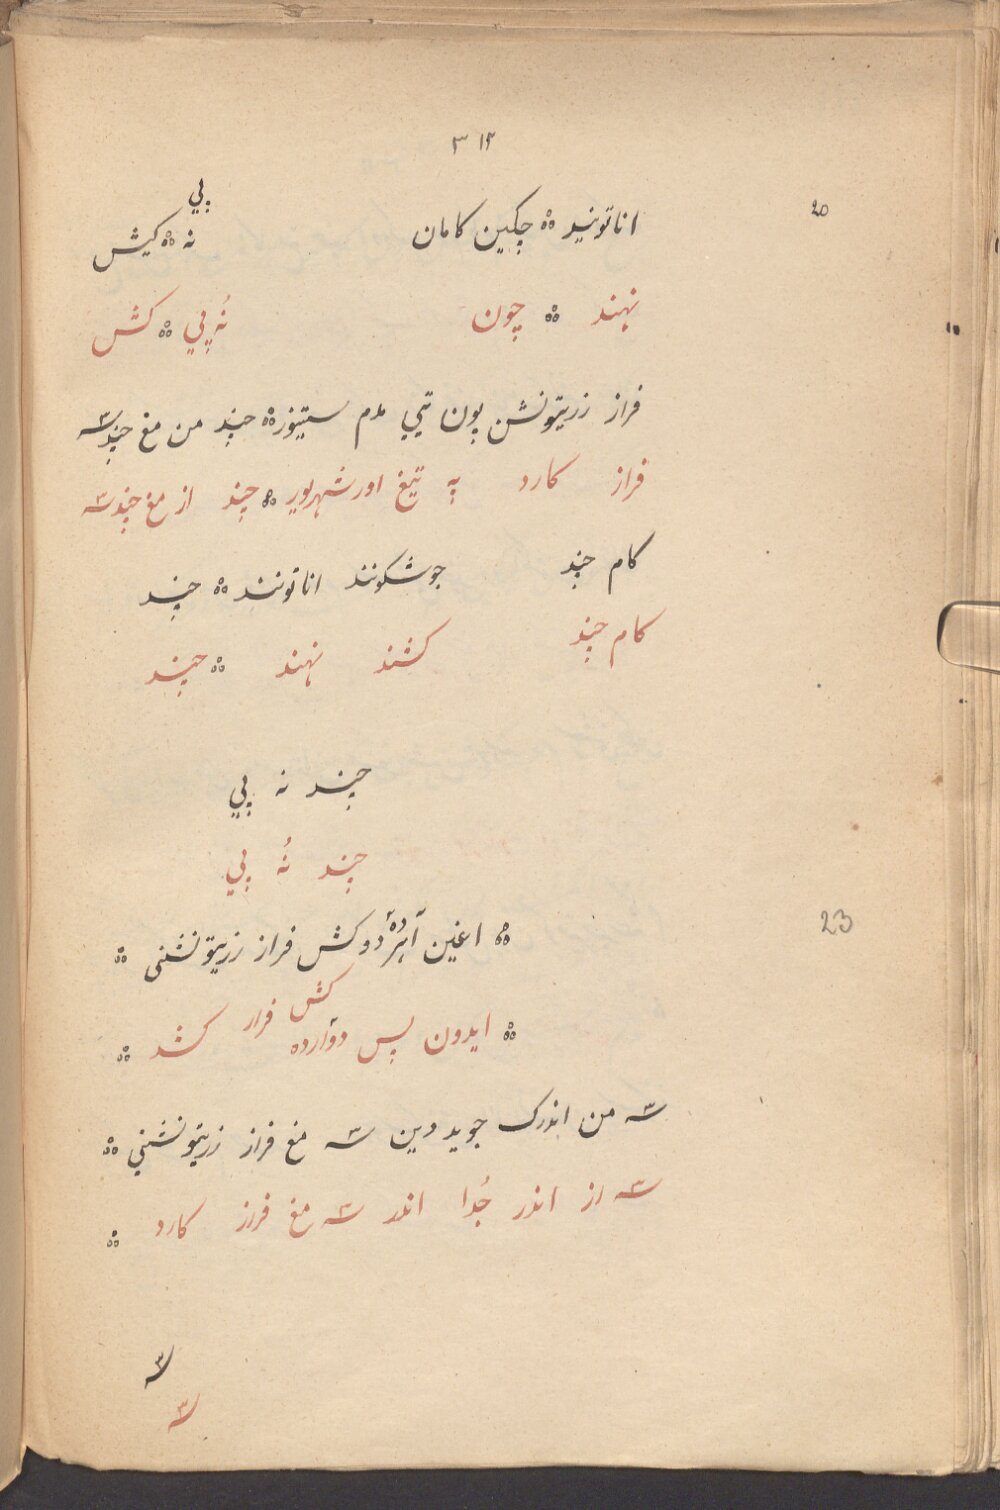 ۳۱۲
20
پي
اناتونید ؞ چکین کامان نه ؞ کیش
نهند ؞ چون نُه پي ؞ کش
فراز زریتونشن پون تیي مدم ستیوزر ؞ چند من مغ چند سه
فراز کارد په تیغ اورشهریور ؞ چند از مغ چند سه
کام چند جوشکونند اناتونند ؞ چند
کام چند کشند نهند ؞ چند
چند نه پي
چند نُه پي
23
؞ اغین آهر ده دو کش فراز زریتونشنی ؞
؞ ایدون پس دوآرده کش فراز کشد ؞
سه من اندرک جوید دین سه مغ فراز زریتونشني ؞
سه از اندر جُدا اند سه مغ فراز کارد ؞
سه
سه